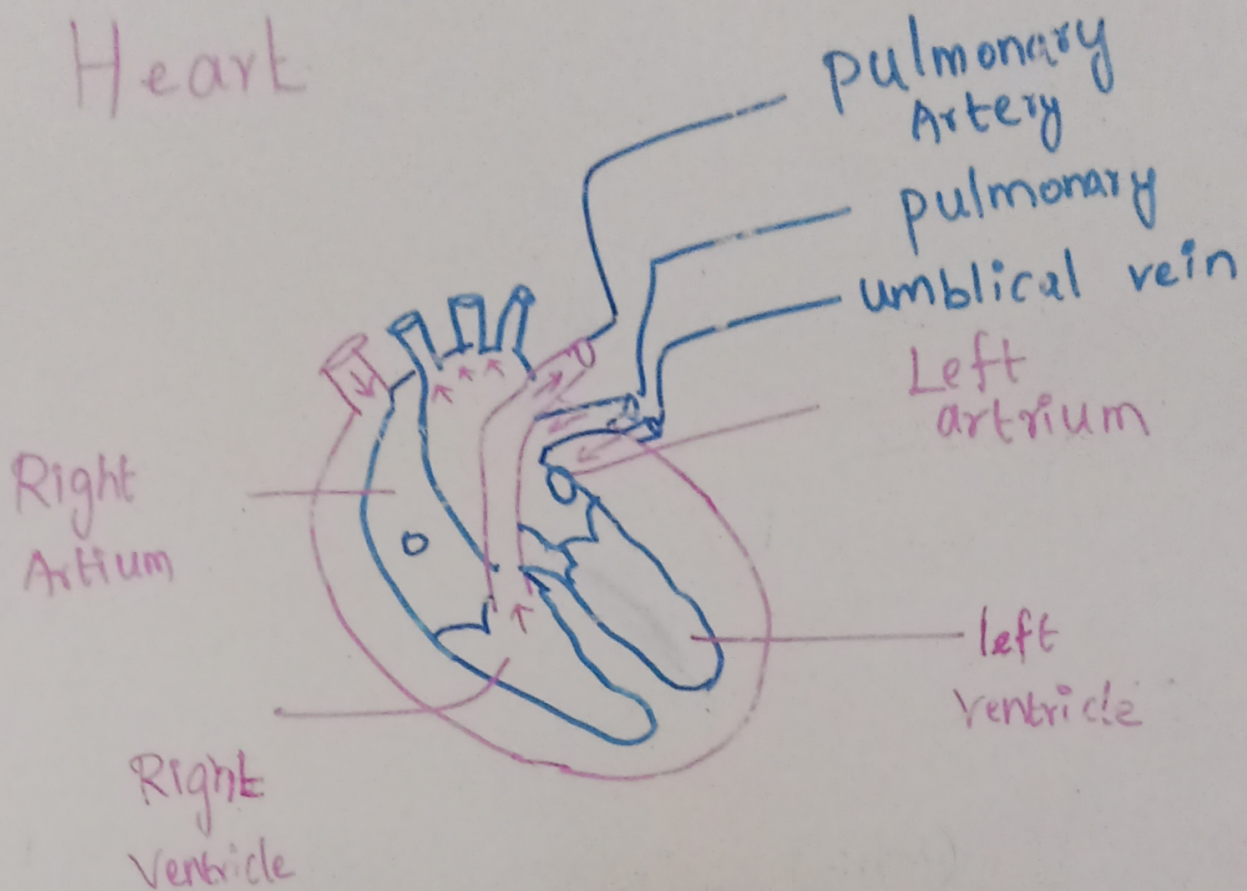 Heart
pulmonary
Artery
pulmonary
umblical vein
Left
artrium
Right
Artium
left
ventricle
Right
Ventricle